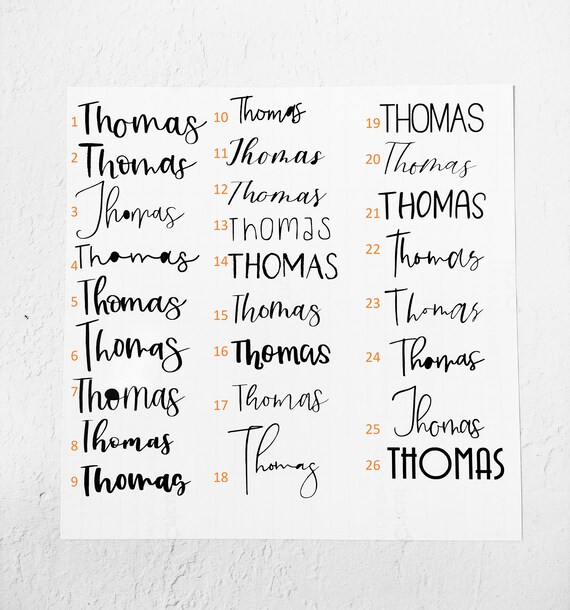 1 Thomas
2 Thomas
3 Thomas
4 Thomas
5 Thomas
6 Thomas
7 Thomas
8 Thomas
9 Thomas
10 Thomas
11 Thomas
12 Thomas
13 Thomas
14 THOMAS
15 Thomas
16 Thomas
17 Thomas
18 Thomas
19 THOMAS
20 Thomas
21 THOMAS
22 Thomas
23 Thomas
24 Thomas
25 Thomas
26 THOMAS